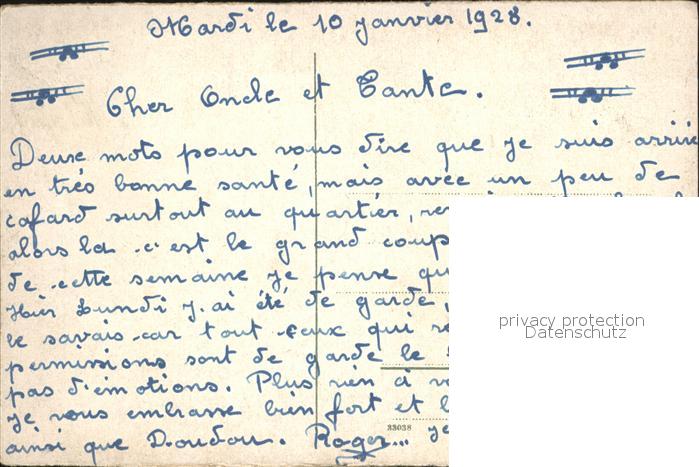 Mardi le 10 janvier 1928.
Cher Oncle et Tante.
Deux mots pour vous dire que je suis arrivé
en très bonne santé, mais avec un peu de
cafard surtout au quartier,
alors là c'est le grand coup
de cette semaine je pense
Hier Lundi j'ai été de garde,
le savais car tout ceux qui
permissions sont de garde le
pas d'émotions. Plus rien à
je vous embrasse bien fort et
ainsi que Doudou. Roger...
33038
privacy protection
Datenschutz